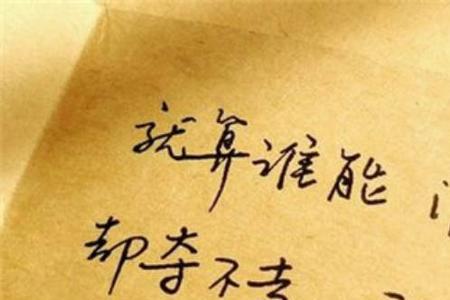 就算谁能
却夺不去